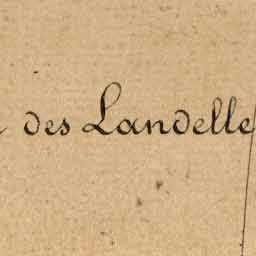 des Landelle